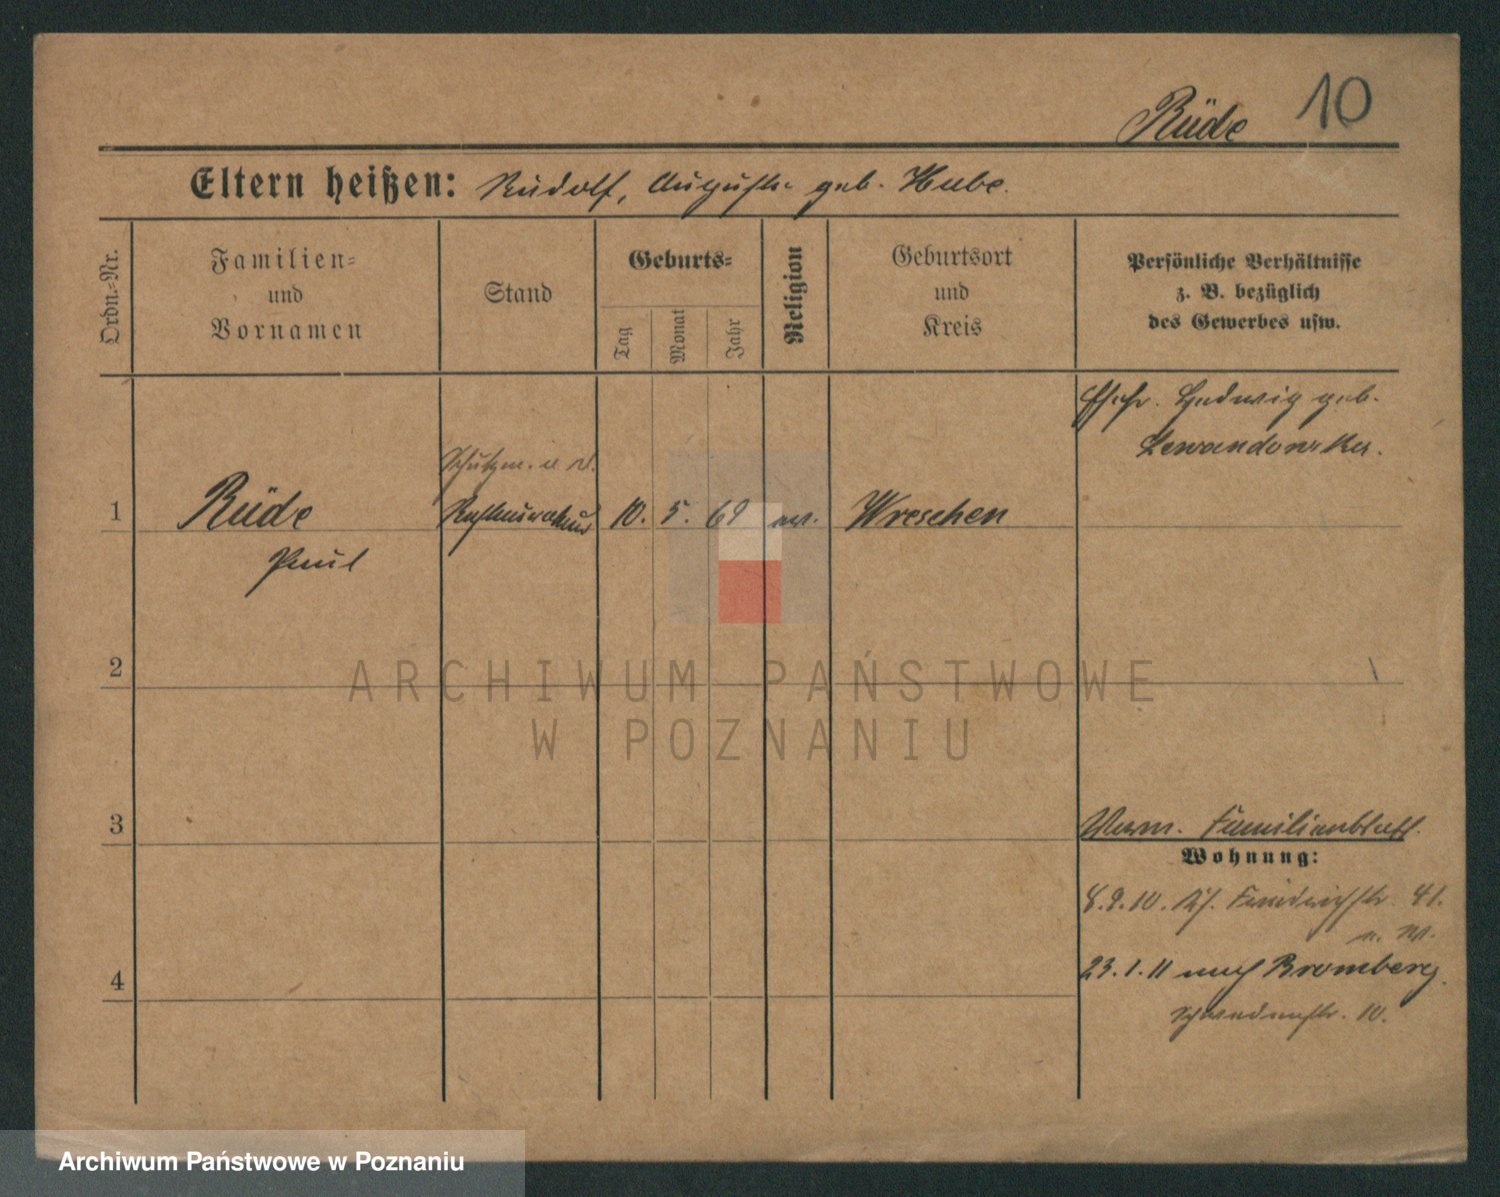 Rüde 10
Eltern heißen: Rudolf, Auguste geb. Hube.
Ordn.-Nr.
Familien-
und
Vornamen
Stand
Geburts-
Tag
Monat
Jahr
Religion
Geburtsort
und
Kreis
Persönliche Verhältnisse
z. B. bezüglich
des Gewerbes usw.
Ehefr. Hedwig geb.
Lewandowska.
Schutzm. a. D.
1 Rüde 10. 5. 69 ev. Wreschen
Paul
2
3
Verm. Familienblatt.
Wohnung:
8.9.10. Friedrichstr. 41.
4
23.1.11 nach Bromberg.
Schwedenstr. 10.
ARCHIWUM PAŃSTWOWE
W POZNANIU
Archiwum Państwowe w Poznaniu